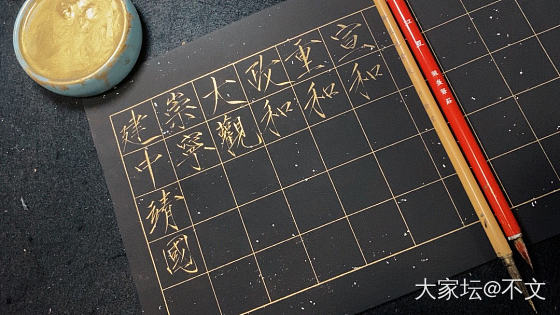 建中靖國
崇寧
大觀
政和
重和
宣和
大家坛@不文